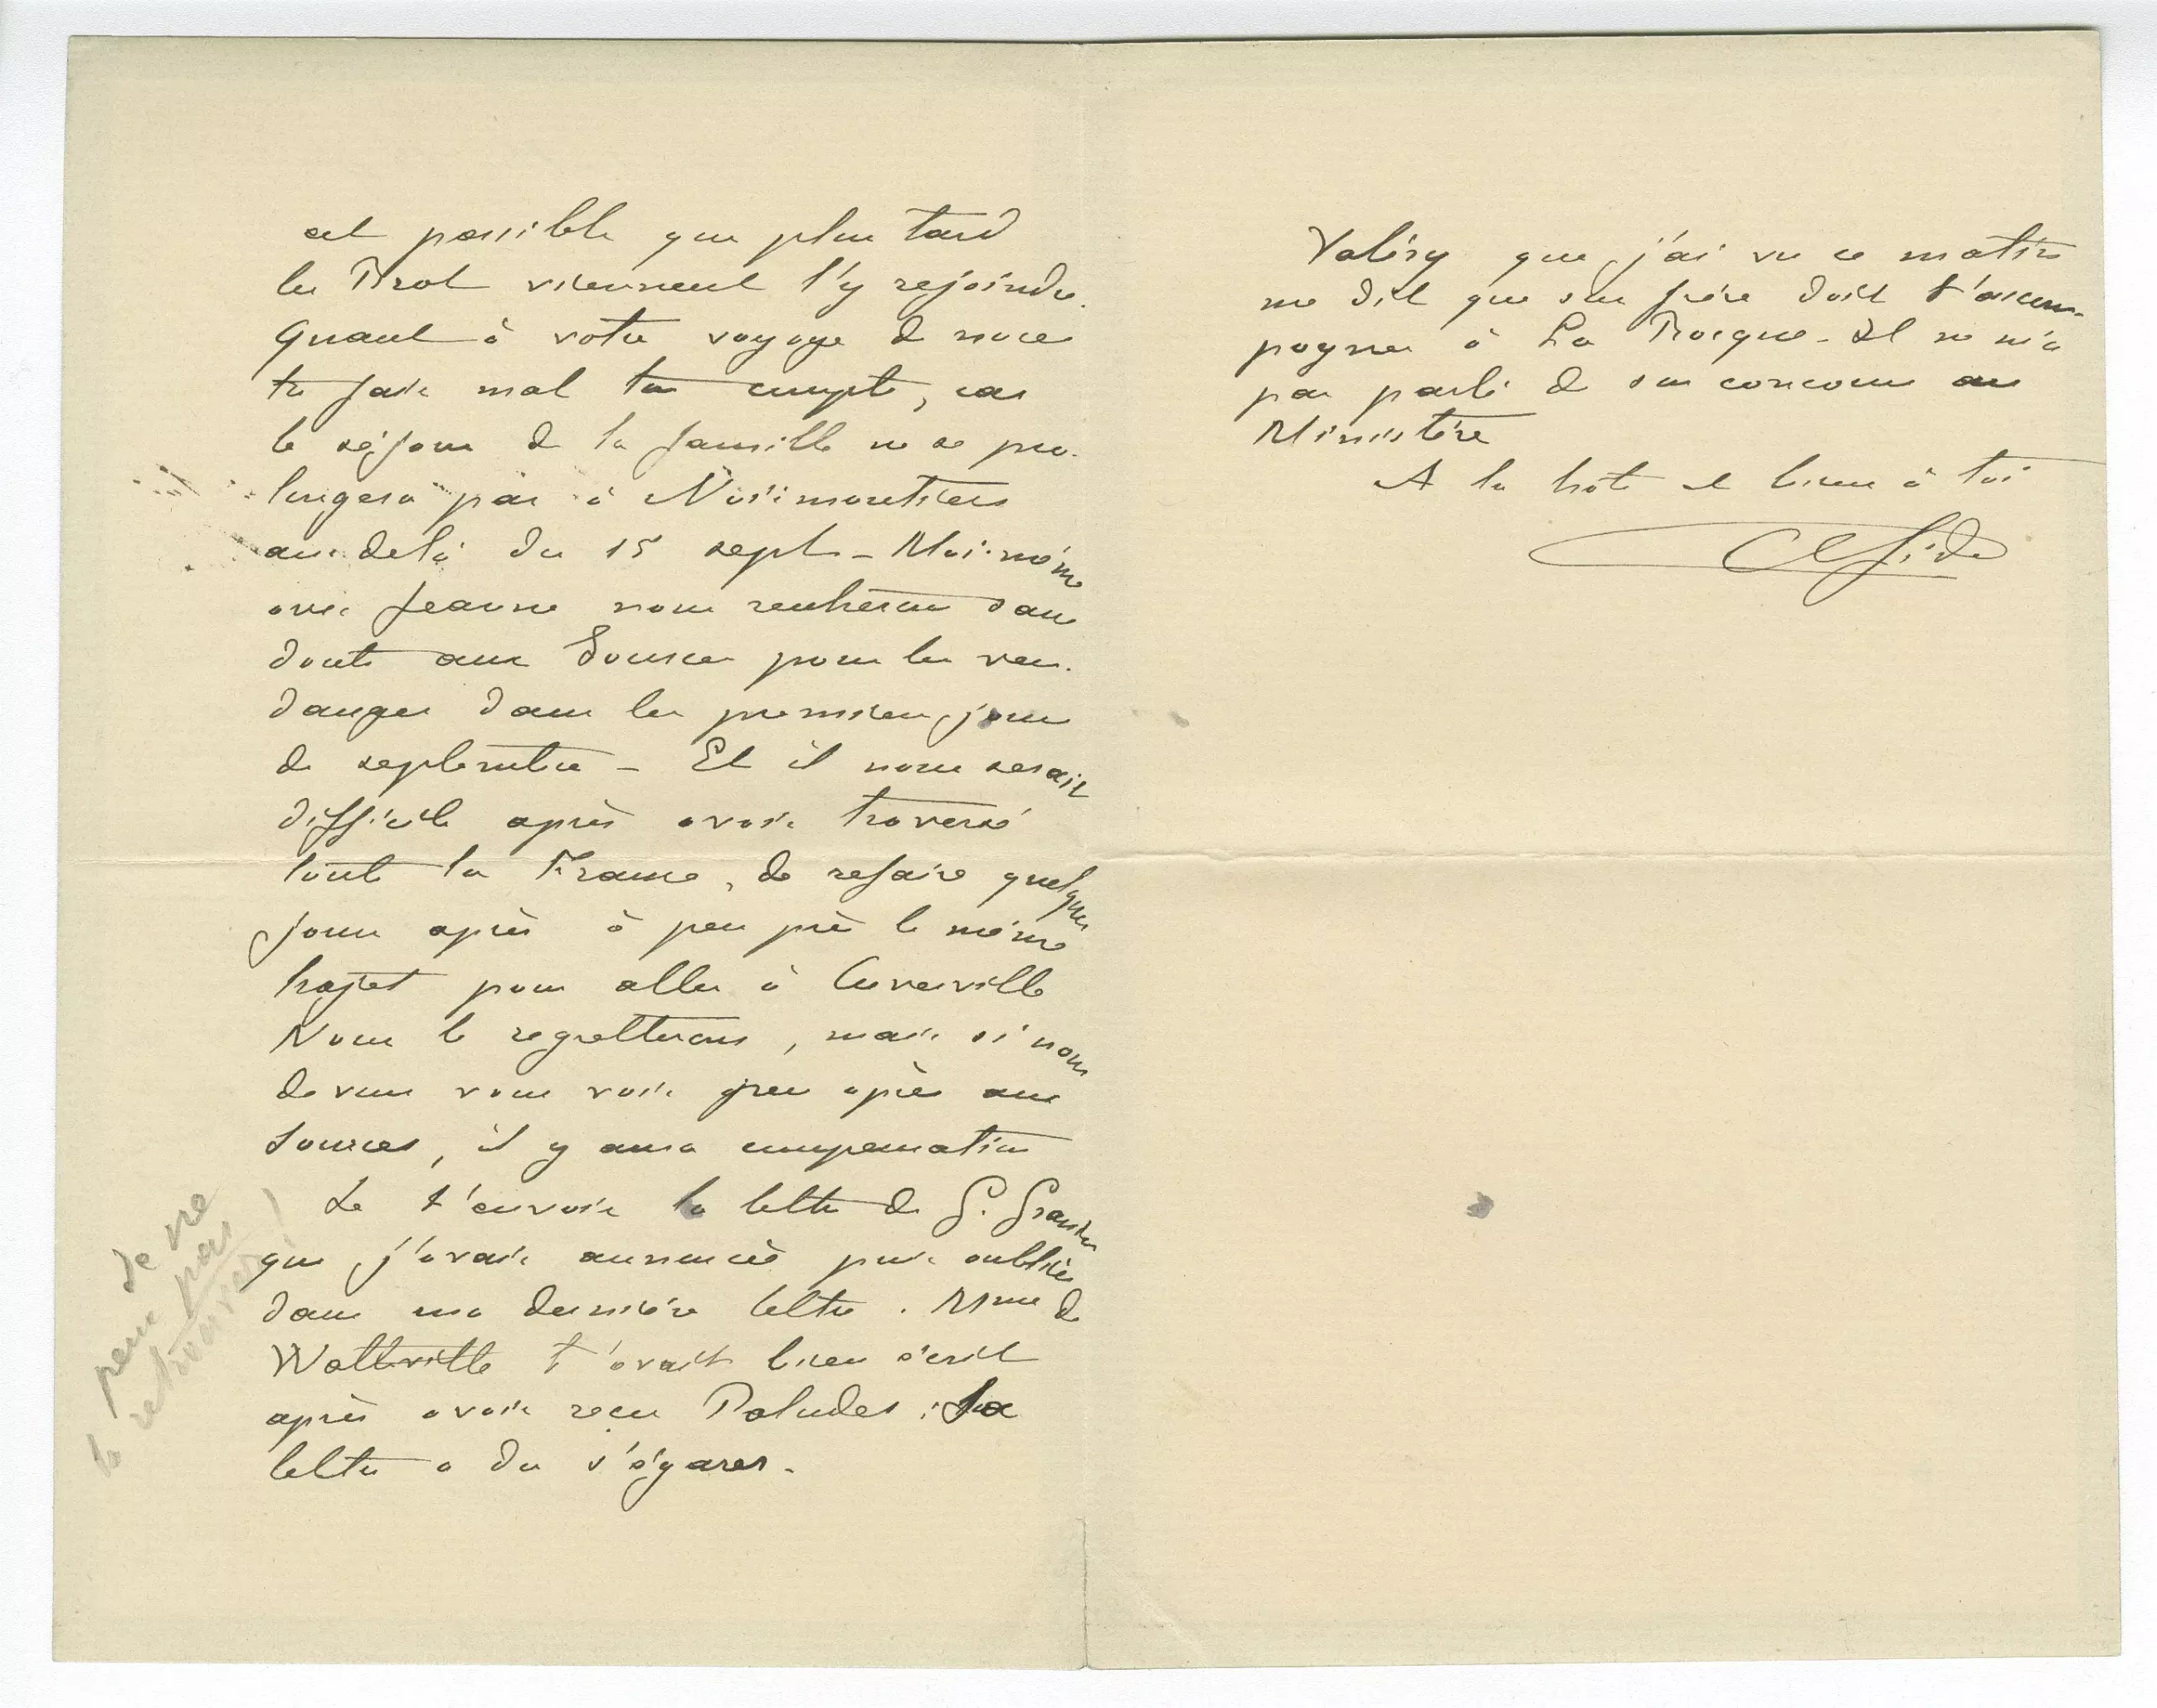 est possible que plus tard
les Briot viennent l'y rejoindre.
Quant à votre voyage de noce
tu fais mal ton compte, car
le séjour de la famille ne se pro-
longera pas à Noirmoutiers
au-delà du 15 sept - Moi-même
avec Jeanne nous rentrerons sans
doute aux Sources pour les ven-
danges dans les premiers jours
de septembre - Et il nous serait
difficile après avoir traversé
toute la France, de refaire quelques
jours après à peu près le même
trajet pour aller à Cuverville
Nous le regretterons, mais si nous
devons vous voir peu après aux
Sources, il y aura compensation
Je t'envoie la lettre de G.
que j'avais annoncée puis oubliée
dans ma dernière lettre. Mme de
Watteville t'avait bien écrit
après avoir reçu Paludes; sa
lettre a du s'égarer.
Je ne
peux pas
la retrouver!
Valéry que j'ai vu ce matin
me dit que son frère doit t'accom-
pagner à La Roque - Il ne m'a
pas parlé de son concours au
Ministère
A la hâte et bien à toi
Ch Gide